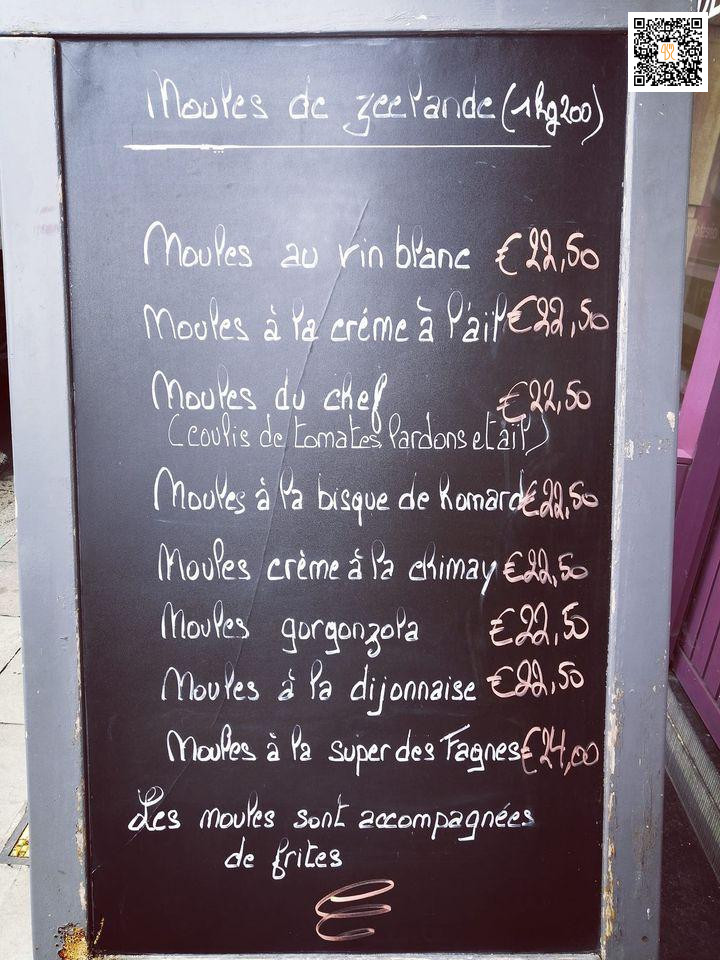 Moules de zeelande (1kg200)
Moules au vin blanc €22,50
Moules à la crème à l'ail €22,50
Moules du chef €22,50
(coulis de tomates, lardons et ail)
Moules à la bisque de homard €22,50
Moules crème à la chimay €22,50
Moules gorgonzola €22,50
Moules à la dijonnaise €22,50
Moules à la super des Fagnes €24,00
Les moules sont accompagnées
de frites